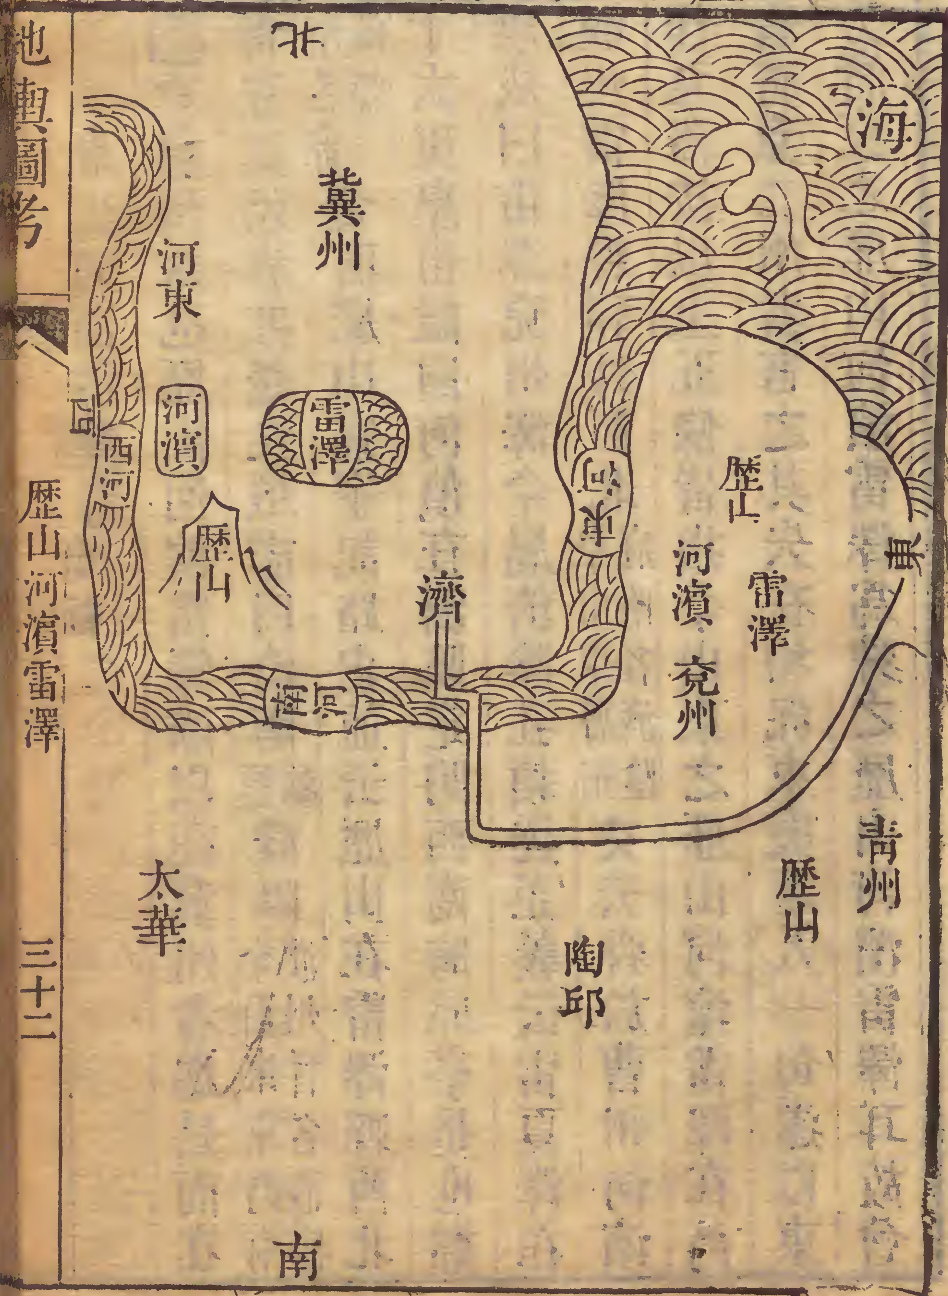 地輿圖考
歷山河濱雷澤
三十二
北
海
冀州
河東
河濱
雷澤
西
西河
歷山
濟
南河
東河
歷山
雷澤
河濱
兗州
東
青州
歷山
陶邱
太華
南